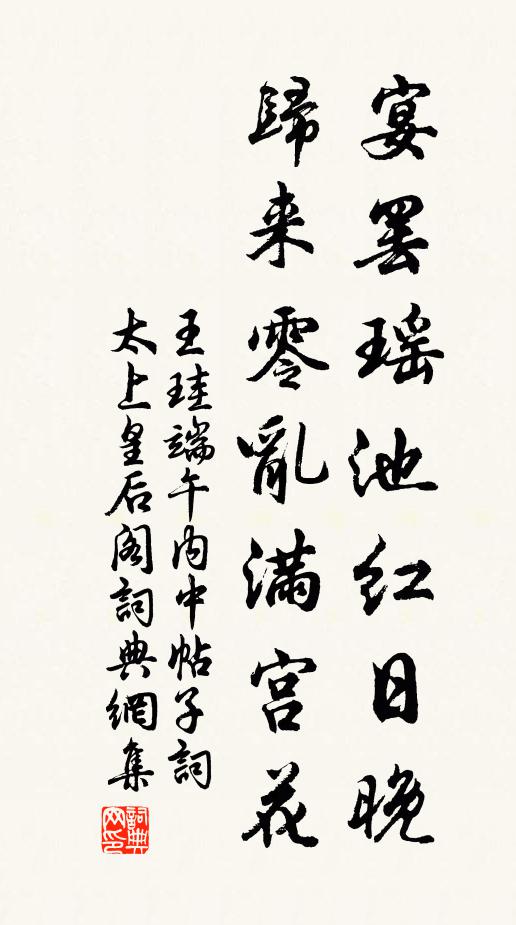 宴罢瑶池红日晚
歸来零亂满宫花
王珪端午内中帖子詞
太上皇后阁詞典網集
詞典网印